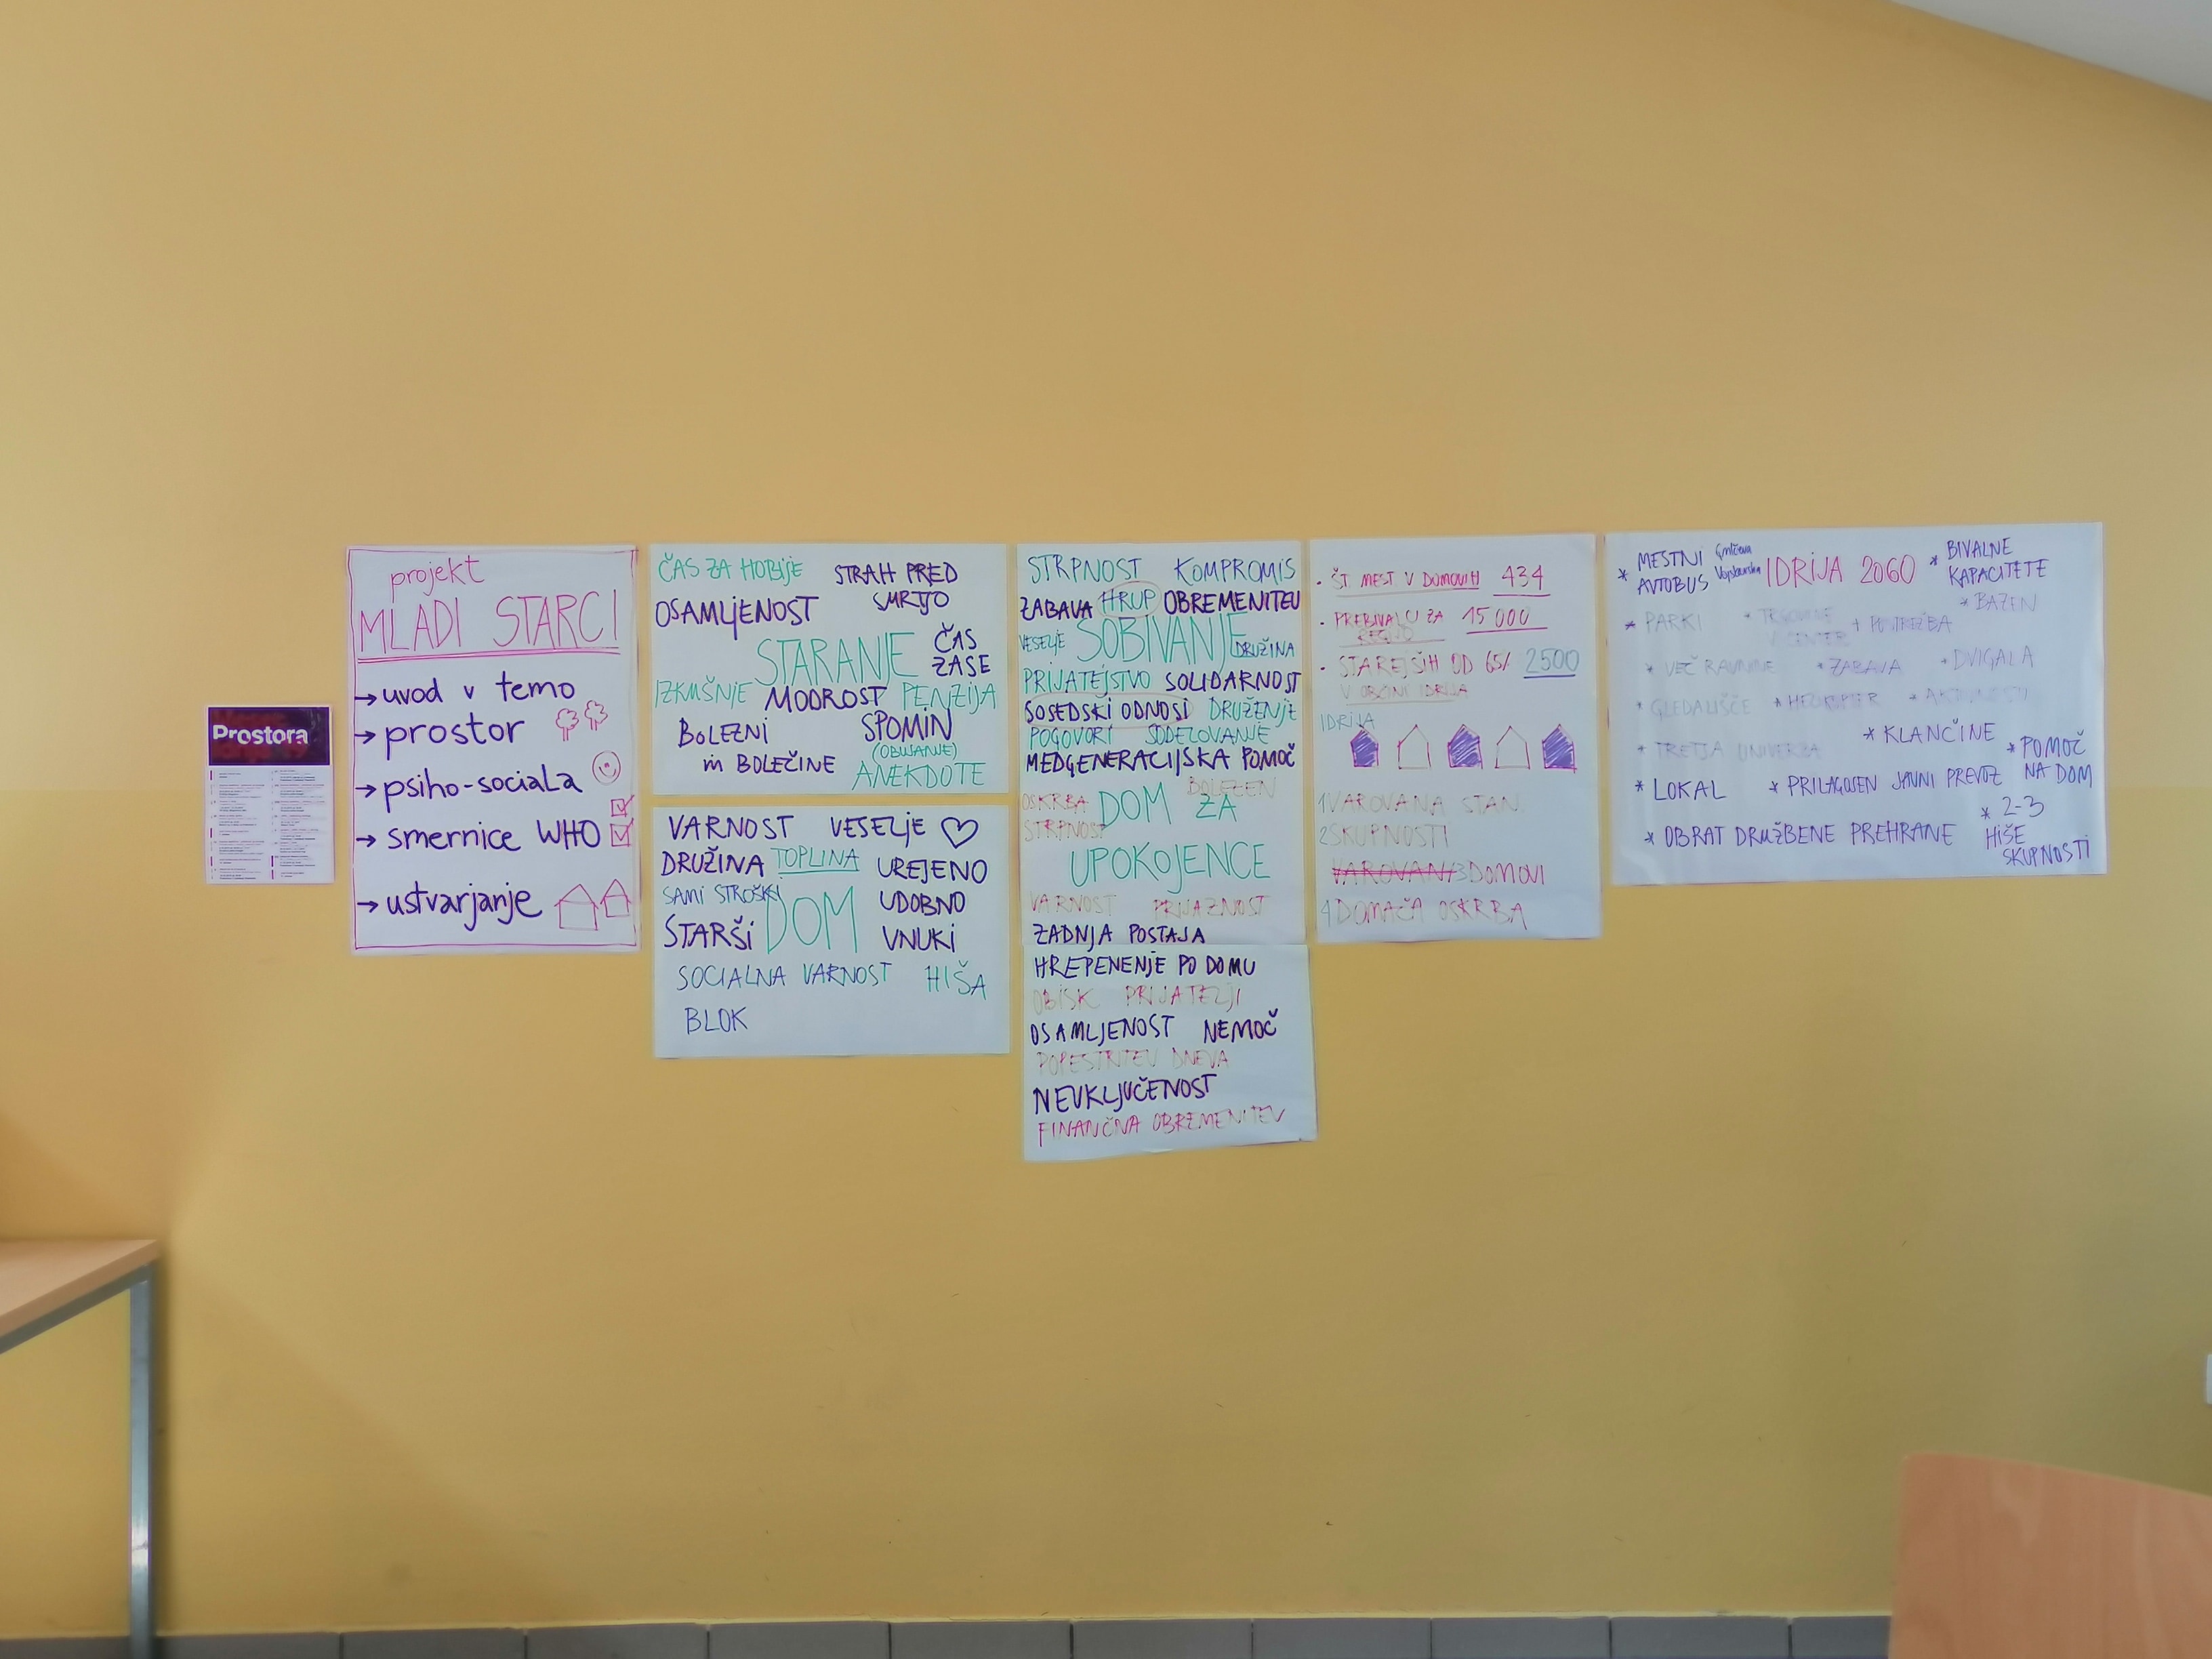 Prostora
projekt
MLADI STARCI
→ uvod v temo
→ prostor
→ psiho-sociala
→ smernice WHO
→ ustvarjanje
ČAS ZA HOBIJE STRAH PRED
SMRTJO
OSAMLJENOST
STARANJE ČAS
ZASE
IZKUŠNJE MODROST PENZIJA
BOLEZNI SPOMIN
in BOLEČINE (OBUJANJE)
ANEKDOTE
VARNOST VESELJE
DRUŽINA TOPLINA UREJENO
SAMI STROŠKI DOM UDOBNO
STARŠI VNUKI
SOCIALNA VARNOST HIŠA
BLOK
STRPNOST KOMPROMIS
ZABAVA HRUP OBREMENITEV
VESELJE SOBIVANJE DRUŽINA
PRIJATEJSTVO SOLIDARNOST
SOSEDSKI ODNOSI DRUŽENJE
POGOVORI SODELOVANJE
MEDGENERACIJSKA POMOČ
BOLEZEN
OSKRBA DOM ZA
STRPNOST
UPOKOJENCE
VARNOST PRIJAZNOST
ZADNJA POSTAJA
HREPENENJE PO DOMU
OBISK PRIJATELJI
OSAMLJENOST NEMOČ
POPESTRITEV DNEVA
NEVKLJUČENOST
FINANČNA OBREMENITEV
• ŠT MEST V DOMOVIH 434
• PREBIVALCU ZA 15 000
REGIJO
• STAREJŠIH OD 65/ 2500
V OBČINI IDRIJA
IDRIJA
1 VAROVANA STAN.
2 SKUPNOSTI
3 DOMOVI
4 DOMAČA OSKRBA
* MESTNI
AVTOBUS
IDRIJA 2060
* BIVALNE
KAPACITETE
* BAZEN
* PARKI * TRGOVINE + POSTREŽBA
CENTER
* VEČ RAVNINE * ZABAVA * DVIGALA
* GLEDALIŠČE * HELIKOPTER * AKTIVNOSTI
* TRETJA UNIVERZA * KLANČINE
* POMOČ
NA DOM
* LOKAL * PRILAGOJEN JAVNI PREVOZ
* OBRAT DRUŽBENE PREHRANE
* 2-3
HIŠE
SKUPNOSTI